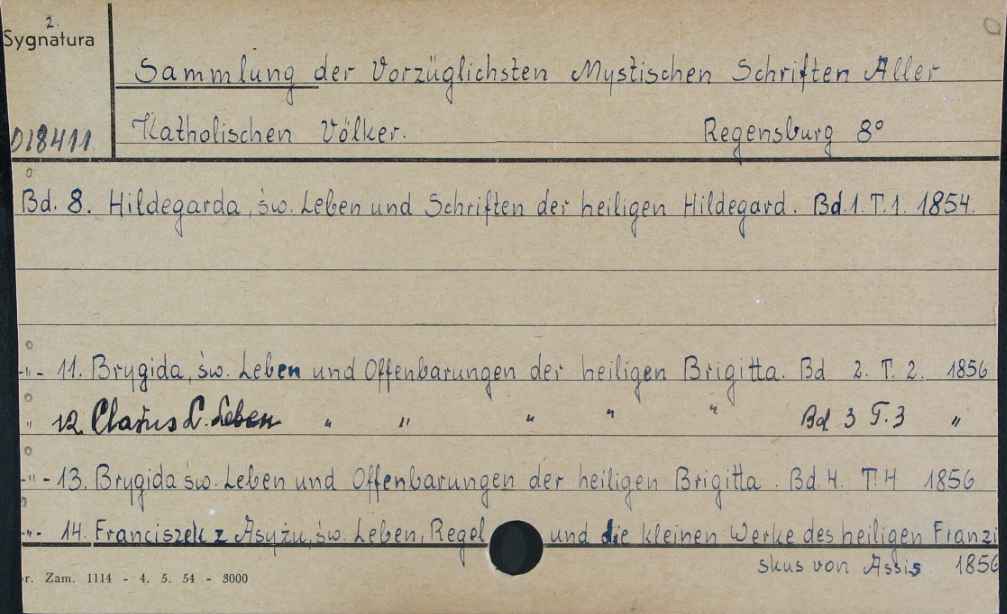 2.
Sygnatura
Sammlung der Vorzüglichsten Mystischen Schriften Aller
D18411 Katholischen Völker. Regensburg 8°
Bd. 8. Hildegarda, św. Leben und Schriften der heiligen Hildegard. Bd.1.T.1. 1854.
-"- 11. Brygida, św. Leben und Offenbarungen der heiligen Brigitta. Bd 2. T. 2. 1856
" 12. Clarus L. Leben " " " " " Bd 3 T.3 "
-"- 13. Brygida św. Leben und Offenbarungen der heiligen Brigitta. Bd 4. T.4 1856
-"- 14. Franciszek z Asyżu, św. Leben, Regel und die kleinen Werke des heiligen Franzi
skus von Assis 1856
r. Zam. 1114 - 4. 5. 54 - 3000